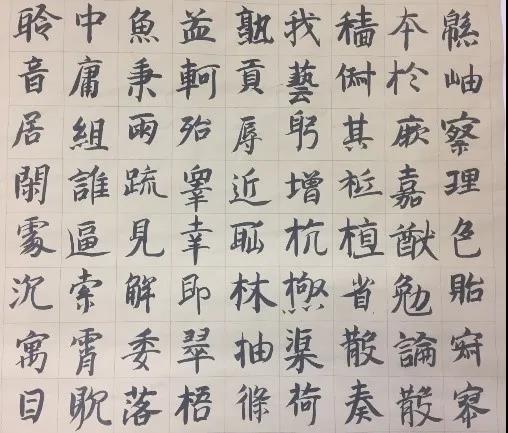 緜岫察理色貽寂寥
本於厥嘉猷勉論散
穡俶其祗植省散奏
我藝躬增抗極渠荷
熟貢辱近恥林抽條
益軻殆皋幸即翠梧
魚秉兩疏見解委落
中庸組誰逼索霄耽
聆音居閑處沉寓目